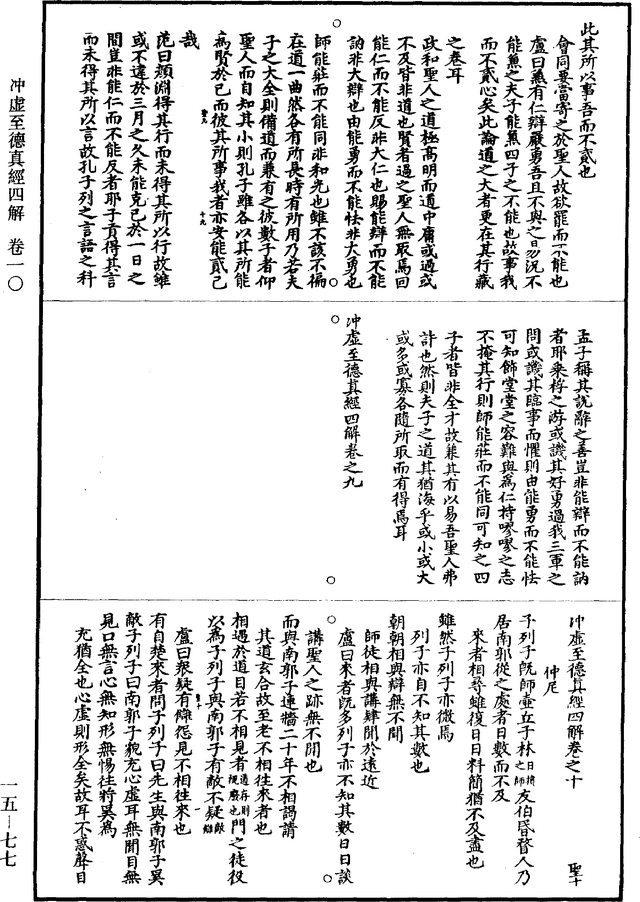 此其所以事吾而不貳也
會同要當寄之於聖人故欲罷而不能也
盧曰兼有仁辯嚴勇吾且不與之易況不
能兼之夫子能兼四子之不能也故事我
而不貳心矣此論道之大者更在其行藏
之卷耳
政和聖人之道極高明而道中庸或過或
不及皆非道也賢者過之聖人無取焉回
能仁而不能反非大仁也賜能辯而不能
訥非大辯也由能勇而不能怯非大勇也
師能莊而不能同非和光也雖不該不徧
在道一曲然各有所長時有所用乃若夫
子之大全則備道而兼有之彼數子者仰
聖人而自知其小則孔子雖各以其所能
為賢於己而彼其所事我者亦安能貳己
哉
范曰顏淵得其行而未得其所以行故雖
或不違於三月之久未能克己於一日之
間豈非能仁而不能反者耶子貢得其言
而未得其所以言故孔子列之言語之科
孟子稱其說辭之善豈非能辯而不能訥
者耶乘桴之游或譏其好勇過我三軍之
問或譏其臨事而懼則由能勇而不能怯
可知飾堂堂之容難與為仁持嘐嘐之志
不掩其行則師能莊而不能同可知之四
子者皆非全才故兼其有以易吾聖人弗
許也然則夫子之道其猶海乎或小或大
或多或寡各隨所取而有得焉耳
冲虛至德真經四解卷之九
冲虛至德真經四解卷之十 聖十
仲尼
子列子既師壺丘子林日損之師友伯昏瞀人乃
居南郭從之處者日數而不及
來者相尋雖復日日料簡猶不及盡也
雖然子列子亦微焉
列子亦自不知其數也
朝朝相與辯無不聞
師徒相與講肄聞於遠近
盧曰來者既多列子亦不知其數日日談
講聖人之跡無不聞也
而與南郭子連牆二十年不相謁請
其道玄合故至老不相往來者也
相遇於道目若不相見者道存則視廢也門之徒役
以為子列子與南郭子有敵不疑敵讎
盧曰衆疑有讎怨見不相往來也
有自楚來者問子列子曰先生與南郭子奚
敵子列子曰南郭子貌充心虛耳無聞目無
見口無言心無知形無惕往將奚為
充猶全也心虛則形全矣故耳不惑聲目
冲虛至德真經四解 卷一〇
一五—七七